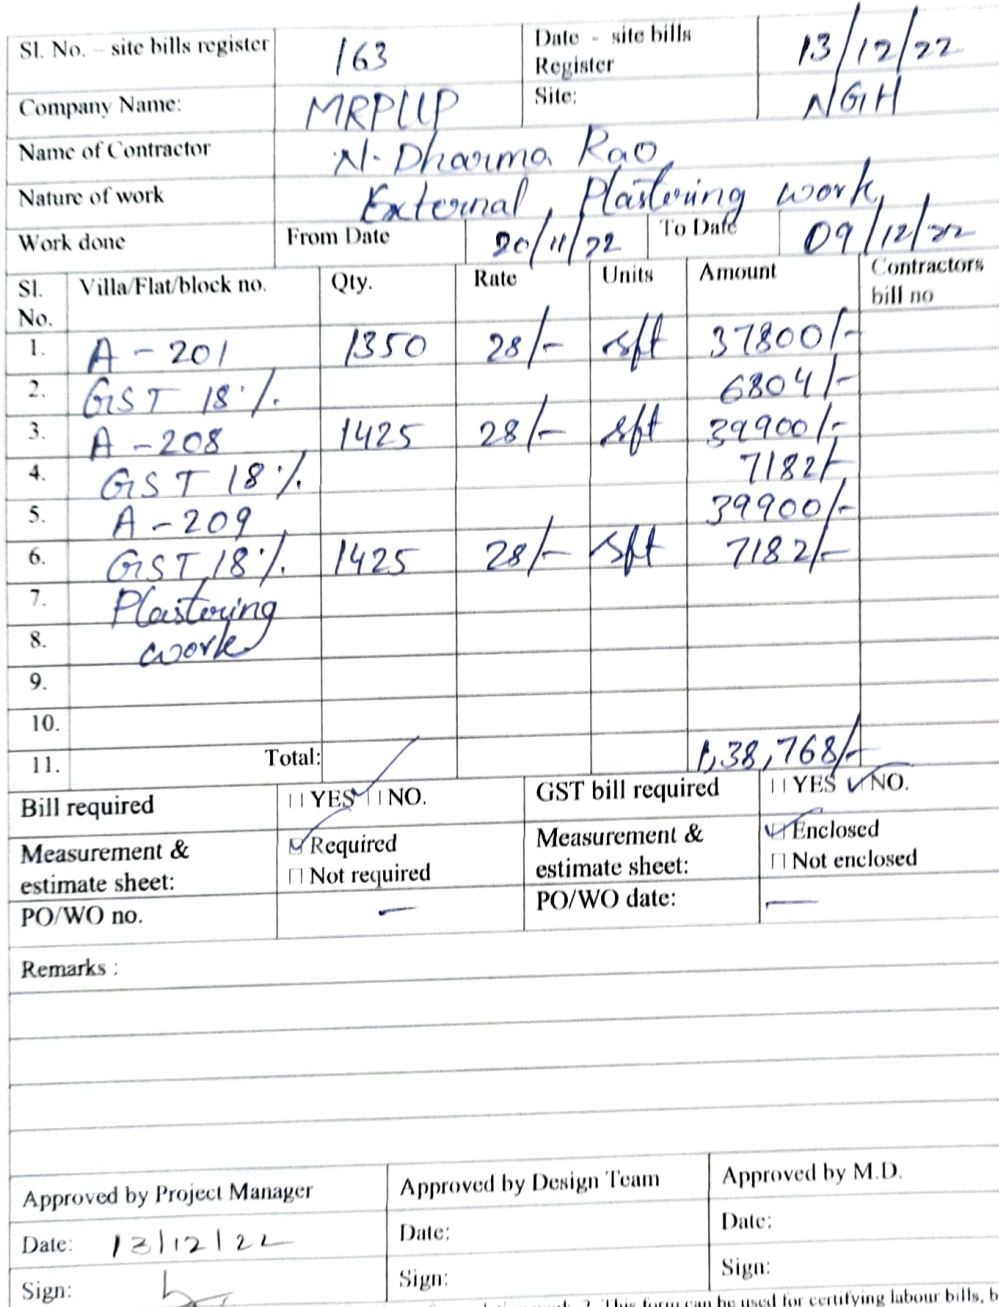 Sl. No. – site bills register 163 Date - site bills Register 13/12/22
Company Name: MRPLLP Site: NGH
Name of Contractor N. Dharma Rao
Nature of work External Plastering work
Work done From Date 20/11/22 To Date 09/12/22
Sl. No. Villa/Flat/block no. Qty. Rate Units Amount Contractors bill no
1. A - 201 1350 28/- sft 37800/-
2. GST 18% 6804/-
3. A - 208 1425 28/- sft 39900/-
4. GST 18% 7182/-
5. A - 209 39900/-
6. GST 18% 1425 28/- sft 7182/-
7. Plastering
8. work
9.
10.
11. Total: 1,38,768/-
Bill required YES NO. GST bill required YES NO.
Measurement & estimate sheet: Required Measurement & estimate sheet: Enclosed
Not required Not enclosed
PO/WO no. – PO/WO date: –
Remarks :
Approved by Project Manager Approved by Design Team Approved by M.D.
Date: 13/12/22 Date: Date:
Sign: Sign: Sign:
2. This form can be used for certifying labour bills, b